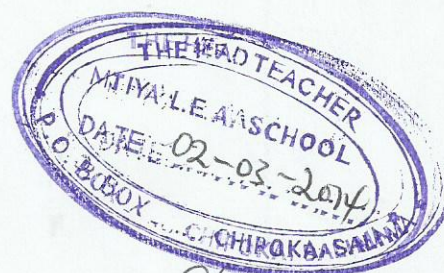 THE HEAD TEACHER
MTIYA L.E.A SCHOOL
DATE: 02-03-2014
P.O. BOX CHIPOKA SALIMA